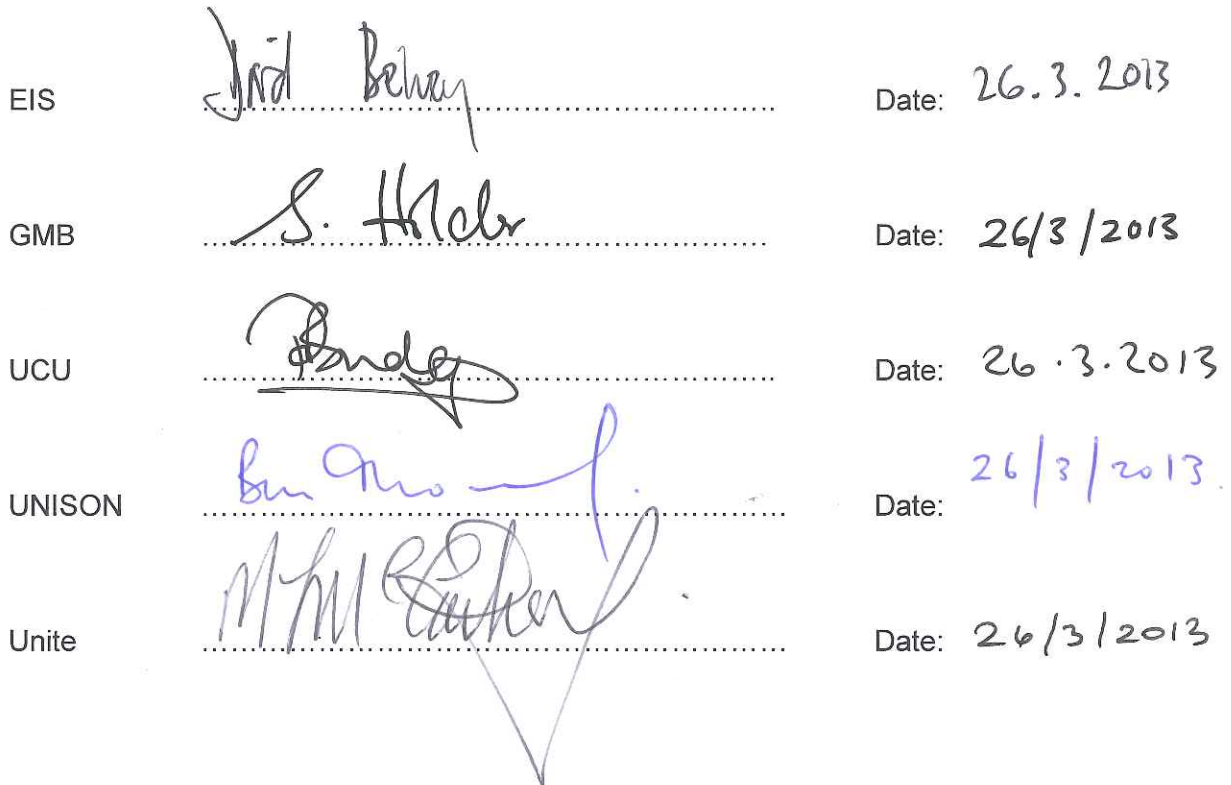 EIS Date: 26.3.2013
GMB S. Holder Date: 26/3/2013
UCU Date: 26.3.2013
UNISON Date: 26/3/2013.
Unite Date: 26/3/2013